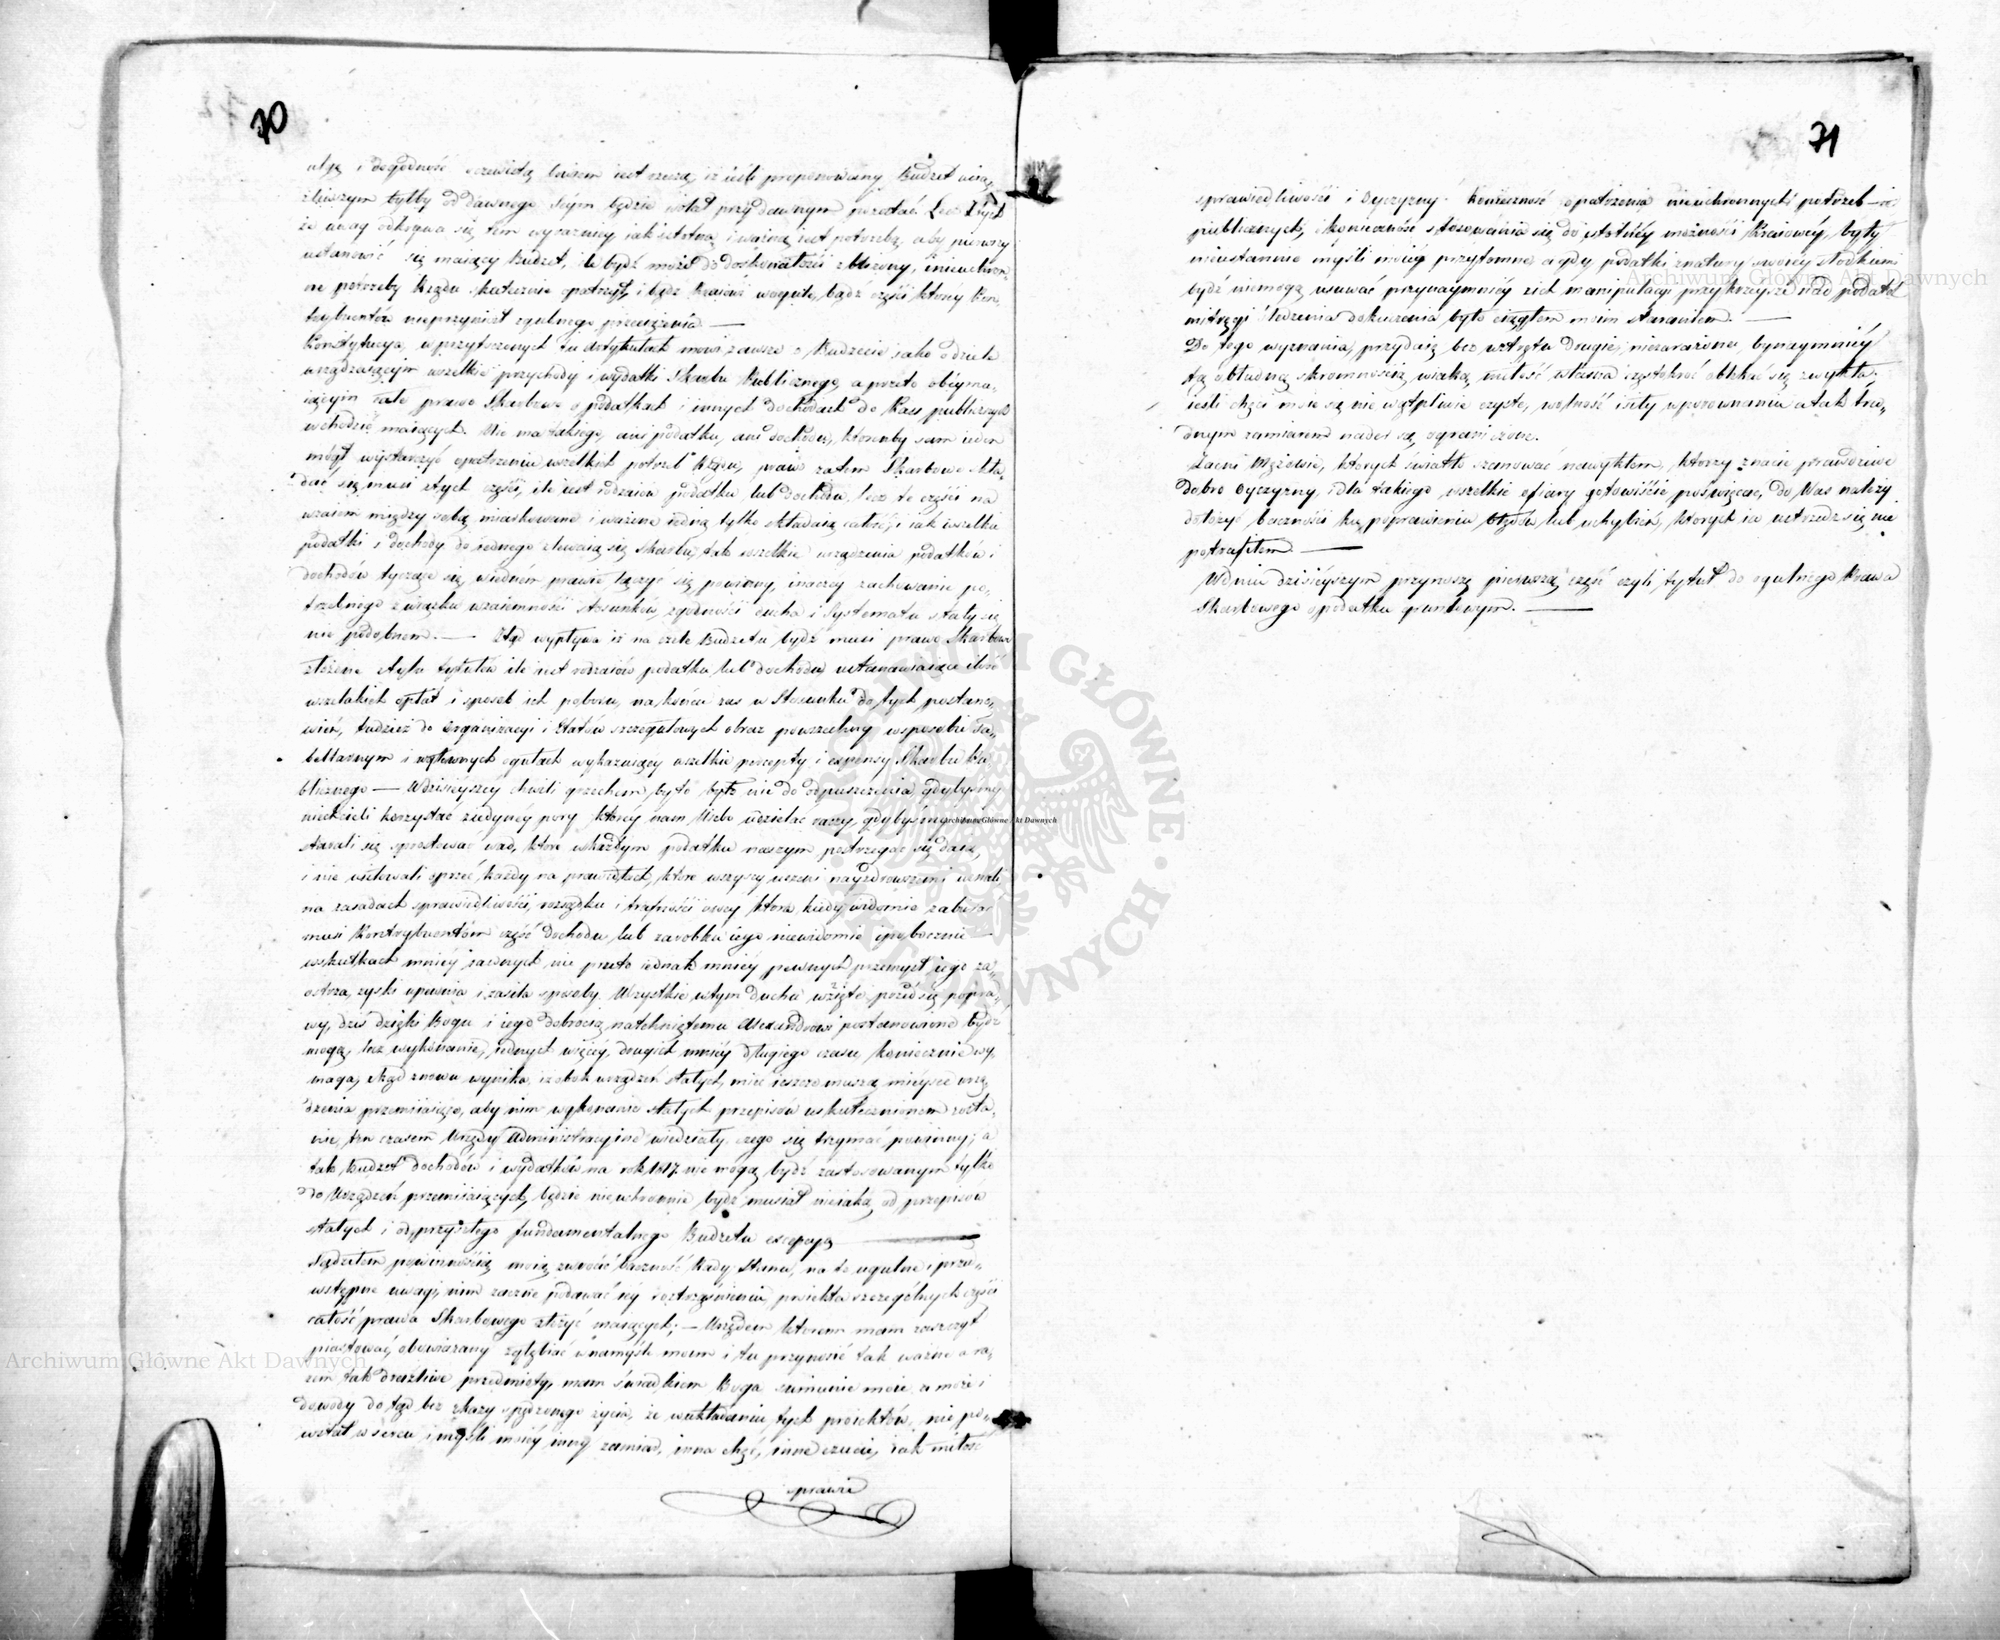 70
ulgę i dogodność oczewistą bowiem iest rzeczą iż ieśli proponowany Budżet ucią-
żliwszym byłby od dawnego Seym będzie wolał przy dawnym przestać. Lecz z tych
że uwag odkrywa się tem wyrazniey iak istotną i ważną iest potrzebą, aby pierwszy
ustanowić się maiący Budżet, ile bydź może do doskonałości zbliżony, i nieuchron-
ne potrzeby Rządu skutecznie opatrzył, i bądź Kraiowi w ogule, bądź części którey Kon-
trybuentów nieprzyniósł zgubnego przeciążenia. —
Konstytucya, w przytoczonych tu artykułach mówi zawsze o Budżecie iako o dziele
urządzaiącym wszelkie przychody i wydatki Skarbu Publicznego, a przeto obeyma-
iącym całe prawo Skarbowe o podatkach i innych dochodach do Kass publicznych
wchodzić maiących. Nie ma takiego, ani podatku, ani dochodu, któryby sam ieden
mógł wystarczyć opatrzeniu wszelkich potrzeb Rządu, prawo zatem Skarbowe skła-
dać się musi z tych części, ile iest rodzaiów podatku lub dochodu, lecz te części na
wzaiem między sobą miarkowane i ważone iedną tylko składaią całość, i iak wszelkie
podatki i dochody do iednego zlewaią się Skarbu, tak wszelkie urządzenia podatków i
dochodów tyczące się, w iednem prawie łączyć się powinny, inaczey zachowanie po-
trzebnego związku wzaiemności stosunków, zgodności ducha i Systematu stały się
nie podobnem. — Ztąd wypływa iż na czele Budżetu bydź musi prawo Skarbowe
złożone z tylu tytułów ile iest rodzaiów podatku lub dochodu ustanawiaiące ilość
wszelakich opłat i sposób ich poboru, na końcu zaś w Stosunku do tych postano-
wień, tudzież do Organizacyi i Etatów szczegułowych obraz powszechny w sposobie Ta-
bellarnym i w głównych ogułach wykazuiący wszelkie percepty i expensy Skarbu Pu-
blicznego — W dzisieyszey chwili grzechem było by nie do odpuszczenia, gdybyśmy
niechcieli korzystać z iedyney pory którey nam Niebo udzielać raczy, gdybyśmy nie
starali się sprostować wad, które w każdym podatku naszym postrzegać się daią,
i nie usiłowali oprzeć każdy na prawidłach, które wszyscy uczeni nayzdrowszemi uznali,
na zasadach sprawiedliwości, rozsądku i trafności owey która, kiedy widomie zabierać
musi Kontrybuentom część dochodu lub zarobku iego niewidomie i pobocznie
w skutkach mniey iawnych nie przeto iednak mniey pewnych przemysł iego za-
ostrza, zyski upewnia i zasila sposoby. Wszystkie w tym duchu wzięte przed się popra-
wy, dziś dzięki Bogu i iego dobrocią natchniętemu Alexandrowi postanowione bydź
mogą, lecz wykonanie, iednych więcey, drugich mniey długiego czasu koniecznie wy-
maga, zkąd znowu wynika, iż obok urządzeń stałych, mieć ieszcze muszą mieysce urzą-
dzenia przemiiaiące, aby nim wykonanie stałych przepisów uskutecznionem zosta-
nie, tem czasem Urzędy Administracyine wiedziały, czego się trzymać powinny; a
tak Budżet dochodów i wydatków na rok 1817 nie mogąc bydź zastosowanym tylko
do Urządzeń przemiiaiących, będzie nieuchronnie bydź musiał nieiaką od przepisów
stałych i od przyszłego fundamentalnego Budżetu excepcyą —
Sądziłem powinnością moią zwrócić baczność Rady Stanu, na te ogulne i przed-
wstępne uwagi, nim zacznę podawać iey roztrząśnieniu proiekta szczególnych części
całość prawa Skarbowego złożyć maiących; — Urzędem którem mam zaszczyt
piastować, obowiązany zgłębiać w namyśle moim i tu przynosić tak ważne a ra-
zem tak drażliwe przedmioty, mam świadkiem Boga sumienie moie a może i
dowody do tąd bez skazy spędzonego życia, że w układaniu tych proiektów, nie po-
wstał w sercu i myśli moiey inny zamiar, inna chęć, inne czucie, iak miłość
sprawie
71
sprawiedliwości i Oyczyzny. Konieczność opatrzenia nieuchronnych potrzeb
publicznych, i konieczność stosowania się do istotney możności Kraiowey, były
nieustannie myśli moiey przytomne a gdy podatki z natury swoiey słodkiemi
bydź niemogą usuwać przynaymniey z ich manipulacyi przykrzeysze nad podatek
mitręgi śledzenia dokuczenia było ciągłem moim staraniem. —
Do tego wyznania, przydaię bez wstrętu drugie, niezarażone bynaymniey
tą obłudną skromnością, w iaką miłość własna częstokroć oblekać się zwykła.
ieśli chęci moie są nie wątpliwie czyste, wolność i siły w porównaniu z tak tru-
dnym zamiarem nader są ograniczone.
Zacni Mężowie, których światło szanować nawykłem, którzy znacie prawdziwe
dobro Oyczyzny, i dla takiego wszelkie ofiary gotowiście poświęcać, do Was należy
dołożyć baczności ku poprawieniu błędów lub uchybień, których ia ustrzedz się nie
potrafiłem. —
W dniu dzisieyszym przynoszę pierwszą część czyli tytuł do ogulnego Prawa
Skarbowego o podatku gruntowym. —
Archiwum Główne Akt Dawnych
Archiwum Główne Akt Dawnych
Archiwum Główne Akt Dawnych
ARCHIWUM GŁÓWNE AKT DAWNYCH